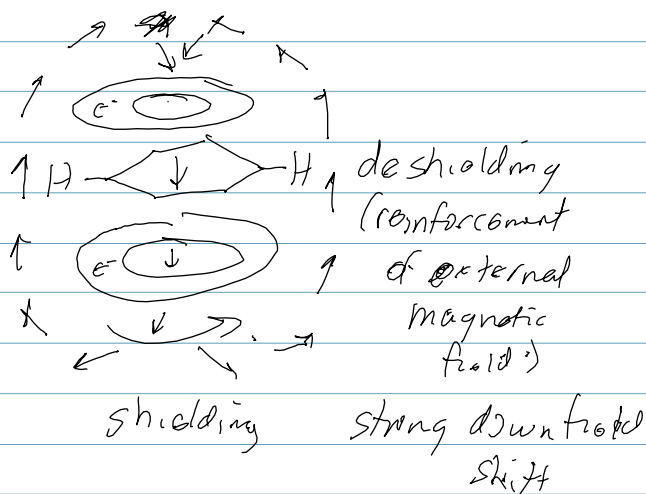 e-
H H deshielding
(reinforcement
e- of external
magnetic
field)
shielding strong downfield
shift